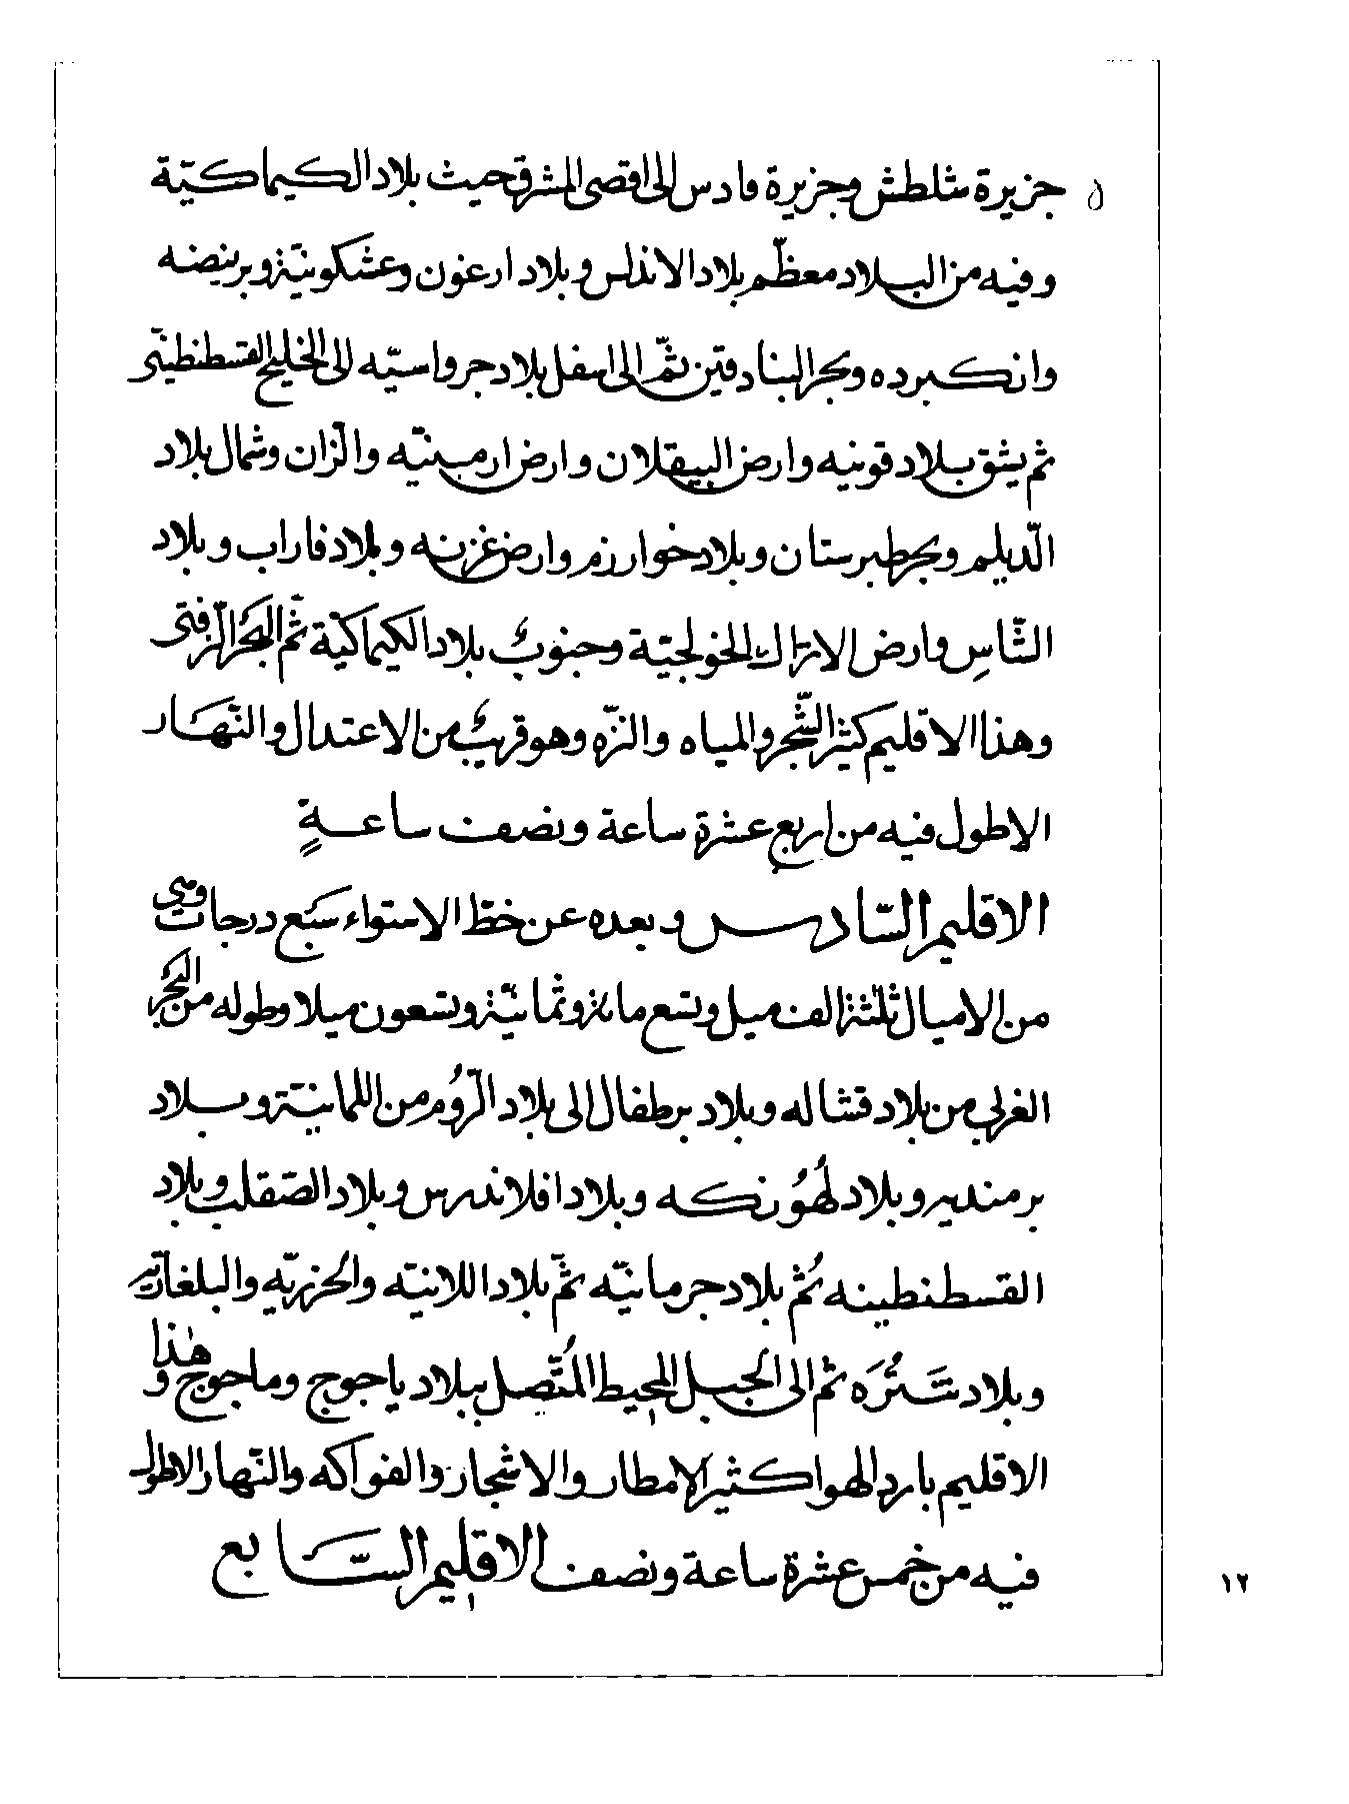 ٥ جزيرة شلطش وجزيرة قادس الى اقصى المشرق حيث بلاد الكيماكيّة
وفيه من البلاد معظّم بلاد الاندلس وبلاد ارغون وغشكونيّة وبرينصه
وانكبرده وبحر البنادقين ثمّ الى اسفل بلاد جرواسيّه الى الخليج القسطنطينى
ثم يشق بلاد قونيه وارض البيقلان وارض ارمينيّه والرّان وشمال بلاد
الدّيلم وبحر طبرستان وبلاد خوارزم وارض غزنه وبلاد فاراب وبلاد
الشّاس وارض الاتراك الخولجيّة وجنوب بلاد الكيماكيّة ثمّ البحر الزّفتى
وهذا الاقليم كثير الشّجر والمياه والنزّه وهو قريب من الاعتدال والنّهار
الاطول فيه من اربع عشرة ساعة ونصف ساعةٍ
الاقليم السّادس وبعده عن خطّ الاستواء سبع درجات وهي
من الاميال ثلثة الف ميل وتسع مائة وثمانيّة وتسعون ميلا وطوله من البحر
الغربي من بلاد قشتاله وبلاد برطقال الى بلاد الرّوُم من اللمانيّة وبلاد
برمنديه وبلاد لهُوُنكه وبلاد افلاندرس وبلاد الصّقلب وبلاد
القسطنطينه ثُمّ بلاد جرمانيّه ثمّ بلاد اللانيّه والخزريّه والبلغاريّه
وبلاد شَتُرَه ثم الى الجبل المحيط المُتّصل ببلاد ياجوج وماجوج وهذا
الاقليم بارد الهوا كثير الامطار والاشجار والفواكه والنّهار الاطول
فيه من خمس عشرة ساعة ونصف الاقليم السّابع
١٢